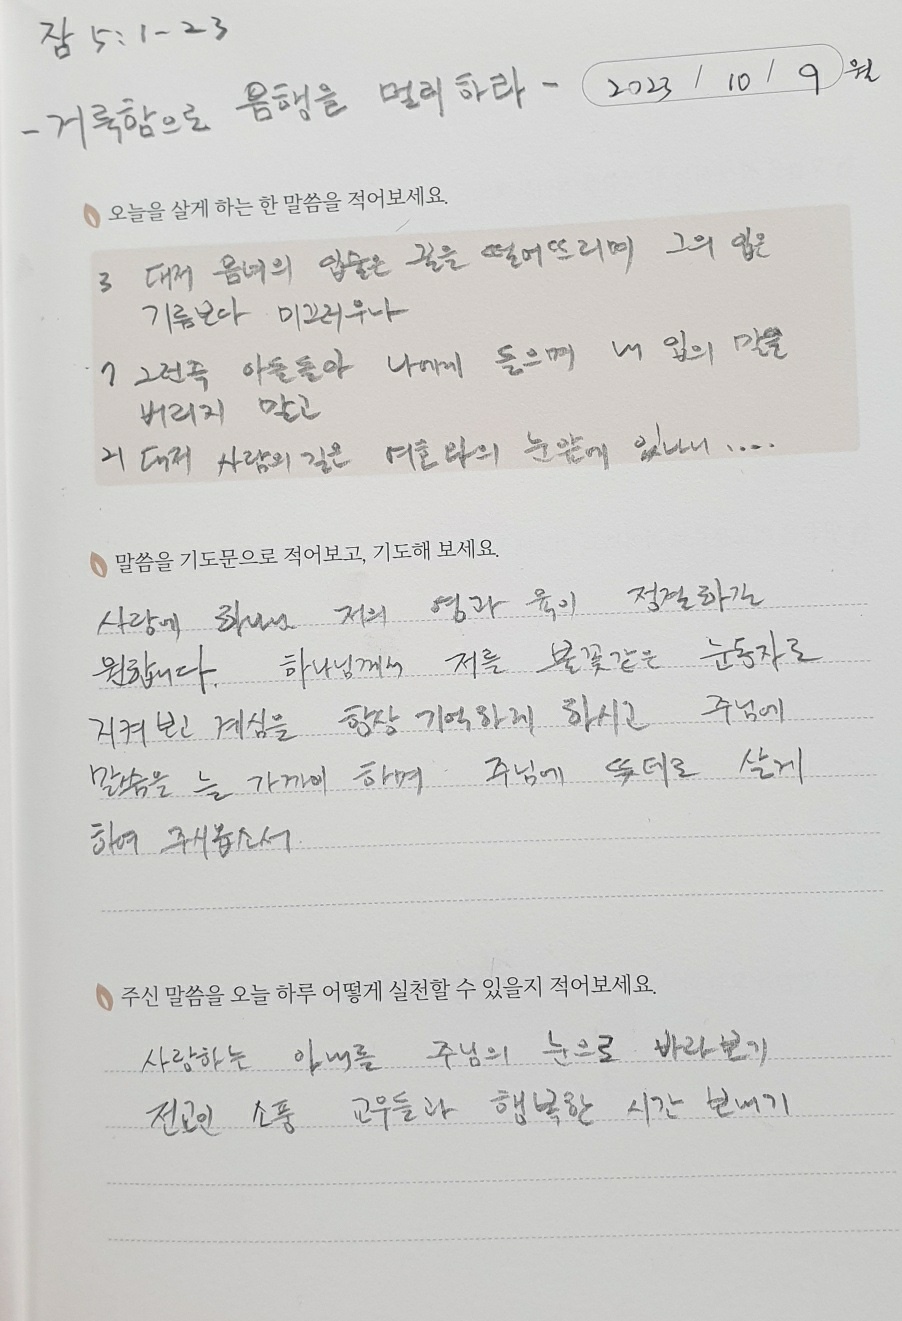 잠 5:1-23
-거룩함으로 음행을 멀리하라-
2023/10/9 월
오늘을 살게 하는 한 말씀을 적어보세요.
3 대저 음녀의 입술은 꿀을 떨어뜨리며 그의 입은
기름보다 미끄러우나
7 그런즉 아들들아 나에게 들으며 내 입의 말을
버리지 말고
21 대저 사람의 길은 여호와의 눈앞에 있나니....
말씀을 기도문으로 적어보고, 기도해 보세요.
사랑에 하나님 저의 영과 육이 정결하길
원합니다. 하나님께서 저를 불꽃같은 눈동자로
지켜보고 계심을 항상 기억하게 하시고 주님에
말씀을 늘 가까이 하며 주님에 뜻데로 살게
하여 주시옵소서
주신 말씀을 오늘 하루 어떻게 실천할 수 있을지 적어보세요.
사랑하는 아내를 주님의 눈으로 바라보기
전교인 소풍 교우들과 행복한 시간 보내기